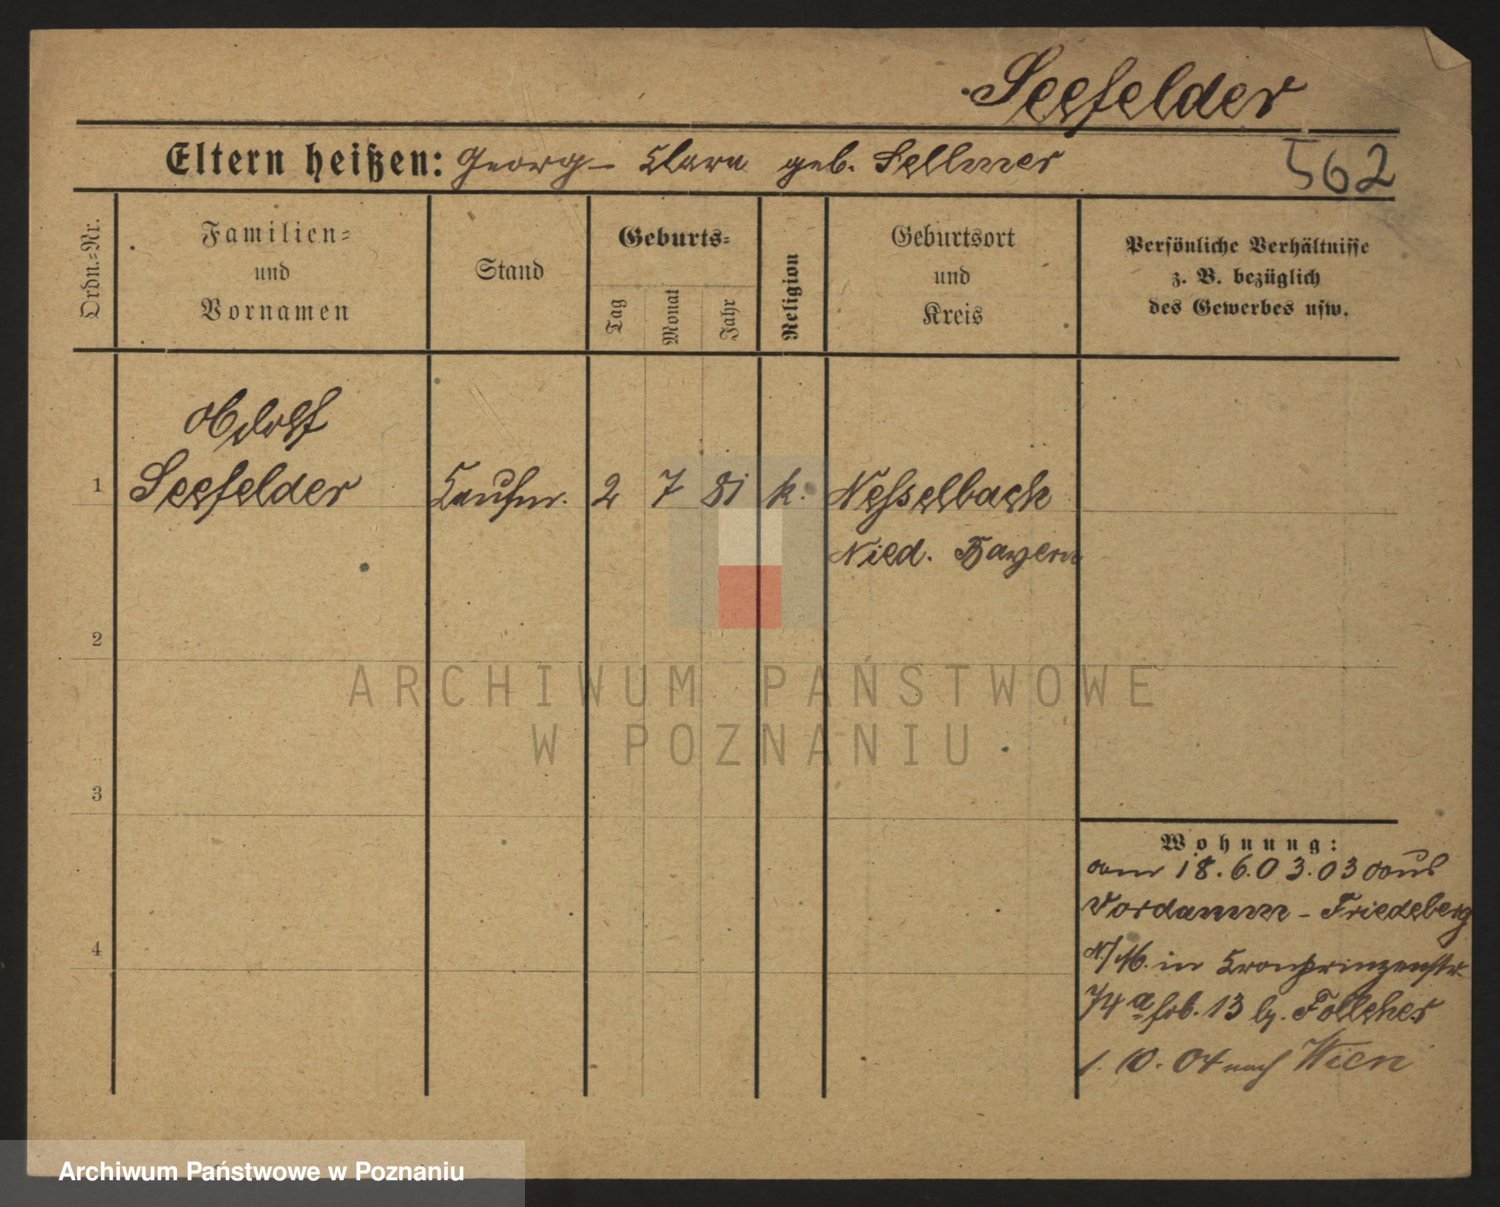 Seefelder
Eltern heißen: Georg – Clara geb. Sellmer
562
Ordn.=Nr.
Familien=
und
Vornamen
Stand
Geburts=
Tag
Monat
Jahr
Religion
Geburtsort
und
Kreis
Persönliche Verhältnisse
z. B. bezüglich
des Gewerbes usw.
Adolf
1 Seefelder Kaufm. 2 7 81 k. Nesselbach
Nied. Bayern
2
ARCHIWUM PAŃSTWOWE
W POZNANIU
3
Wohnung:
am 18.6.03.03 aus
Vordamm – Friedeberg
N/M. in Kronprinzenstr.
74 a b.
1.10.04 nach Wien
4
Archiwum Państwowe w Poznaniu